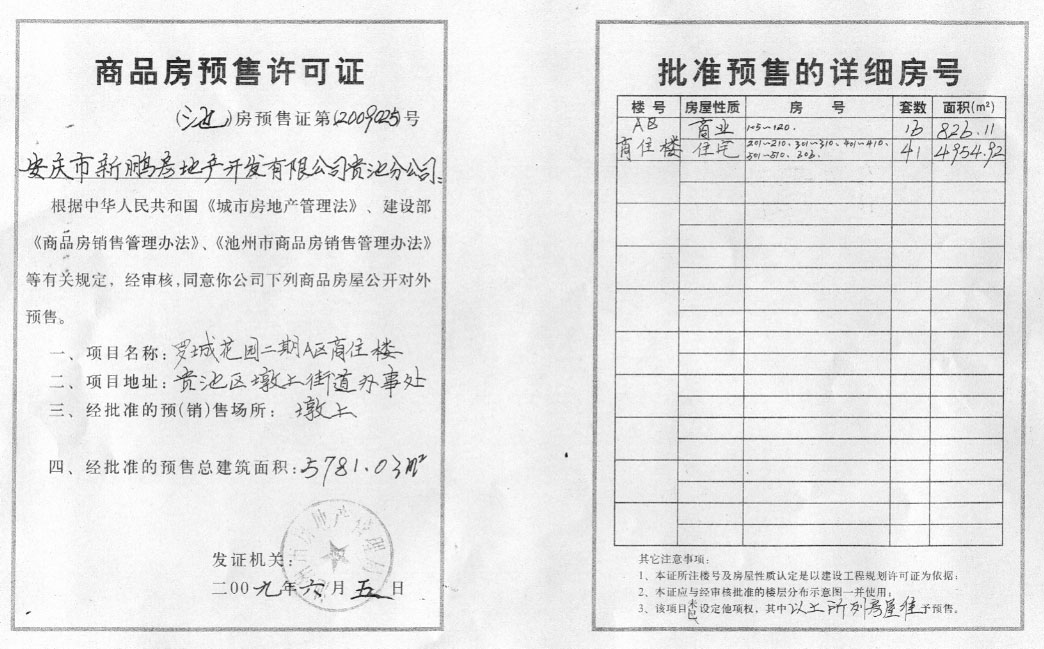 商品房预售许可证
(池)房预售证第(2009025)号
安庆市新鹏房地产开发有限公司贵池分公司:
根据中华人民共和国《城市房地产管理法》、建设部
《商品房销售管理办法》、《池州市商品房销售管理办法》
等有关规定，经审核,同意你公司下列商品房屋公开对外
预售。
一、项目名称:罗城花园二期A区商住楼
二、项目地址:贵池区墩上街道办事处
三、经批准的预(销)售场所:墩上
四、经批准的预售总建筑面积:5781.03m²
发证机关:
二00九年六月五日
批准预售的详细房号
楼号 房屋性质 房号 套数 面积(m²)
AB 商业 105~120. 16 826.11
商住楼 住宅 201~210、301~310、401~410、 41 4954.92
501~510、306.
其它注意事项:
1、本证所注楼号及房屋性质认定是以建设工程规划许可证为依据;
2、本证应与经审核批准的楼层分布示意图一并使用;
3、该项目未已设定他项权，其中以上所列房屋准予预售。